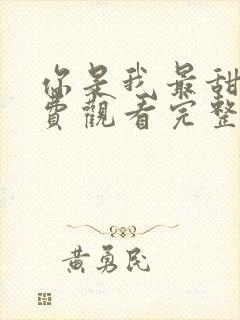 你是我最甜
費觀看完整
黃勇民